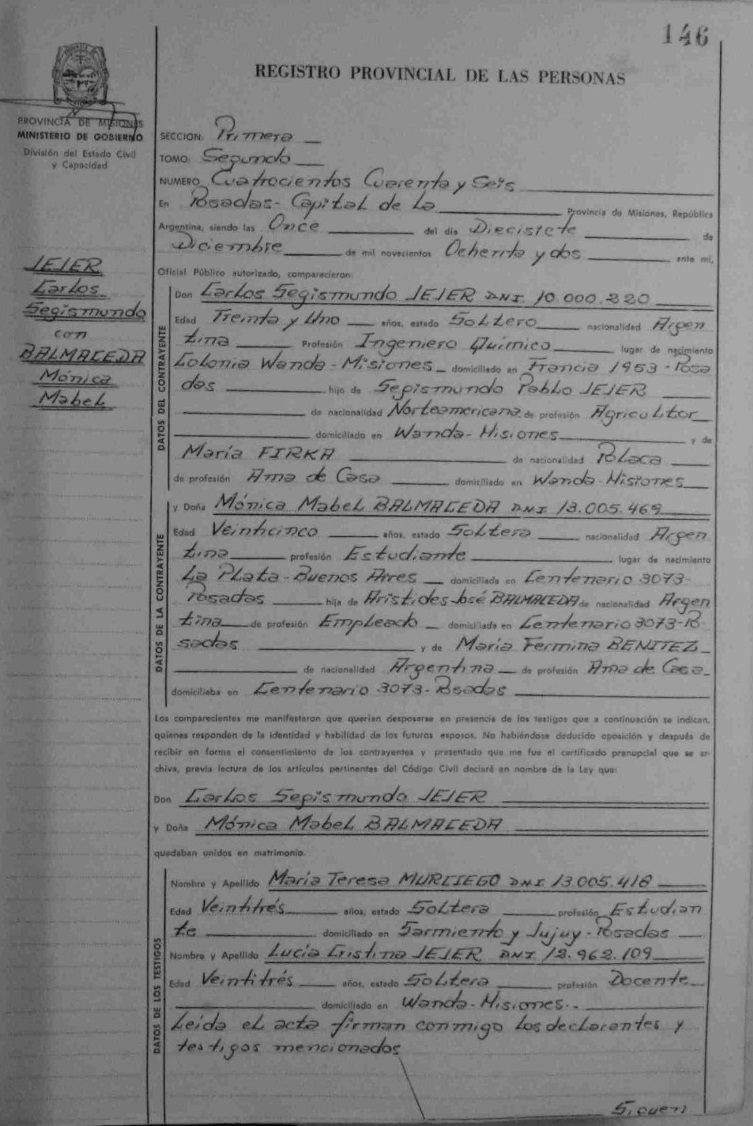 146
REGISTRO PROVINCIAL DE LAS PERSONAS
PROVINCIA DE MISIONES
MINISTERIO DE GOBIERNO
División del Estado Civil
y Capacidad
JEJER
Carlos
Segismundo
con
BALMACEDA
Mónica
Mabel
SECCION: Primera
TOMO: Segundo
NUMERO Cuatrocientos Cuarenta y Seis
En Posadas - Capital de La Provincia de Misiones, República
Argentina, siendo las Once del día Diecisiete de
Diciembre de mil novecientos Ochenta y dos ante mi,
Oficial Público autorizado, comparecieron:
DATOS DEL CONTRAYENTE
Don Carlos Segismundo JEJER DNI 10.000.220
Edad Treinta y Uno años, estado Soltero nacionalidad Argen
tina Profesión Ingeniero Químico lugar de nacimiento
Colonia Wanda - Misiones domiciliado en Francia 1953 - Posa
das hijo de Segismundo Pablo JEJER
de nacionalidad Norteamericana de profesión Agricultor
domiciliado en Wanda - Misiones y de
María FIRKA de nacionalidad Polaca
de profesión Ama de Casa domiciliado en Wanda - Misiones
DATOS DE LA CONTRAYENTE
y Doña Mónica Mabel BALMACEDA DNI 13.005.469
Edad Veinticinco años, estado Soltera nacionalidad Argen
tina profesión Estudiante lugar de nacimiento
La Plata - Buenos Aires domiciliada en Centenario 3073 -
Posadas hija de Aristides José BALMACEDA de nacionalidad Argen
tina de profesión Empleado domiciliada en Centenario 3073 - Po
sadas y de María Fermina BENITEZ
de nacionalidad Argentina de profesión Ama de Casa
domiciliaba en Centenario 3073 - Posadas
Los comparecientes me manifestaron que querían desposarse en presencia de los testigos que a continuación se indican,
quienes responden de la identidad y habilidad de los futuros esposos. No habiéndose deducido oposición y después de
recibir en forma el consentimiento de los contrayentes y presentado que me fue el certificado prenupcial que se ar
chiva, previa lectura de los artículos pertinentes del Código Civil declaré en nombre de la Ley que:
Don Carlos Segismundo JEJER
y Doña Mónica Mabel BALMACEDA
quedaban unidos en matrimonio.
DATOS DE LOS TESTIGOS
Nombre y Apellido María Teresa MURCIEGO DNI 13.005.418
Edad Veintitrés años, estado Soltera profesión Estudian
te domiciliado en Sarmiento y Jujuy - Posadas
Nombre y Apellido Lucía Cristina JEJER DNI 12.962.109
Edad Veintitrés años, estado Soltera profesión Docente
domiciliado en Wanda - Misiones.-
Leída el acta firman conmigo los declarantes y
testigos mencionados
Siguen